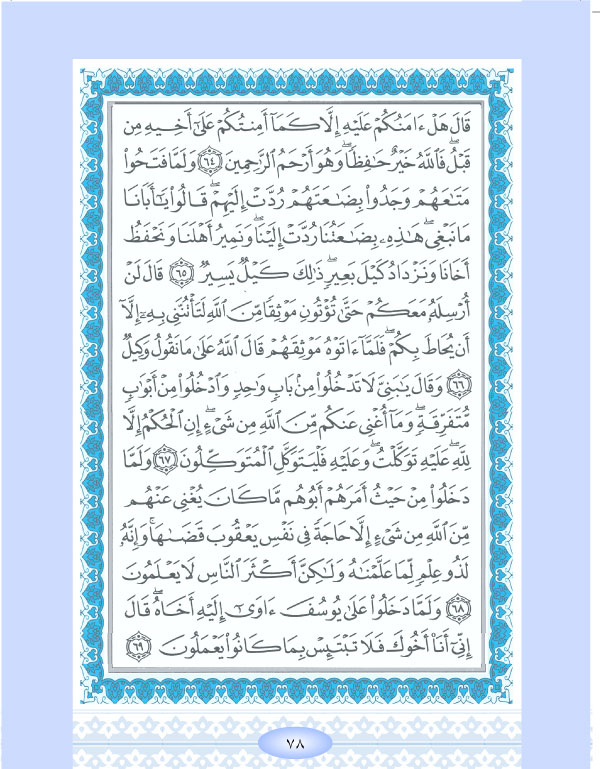 قَالَ هَلْ ءَامَنُكُمْ عَلَيْهِ إِلَّا كَمَآ أَمِنتُكُمْ عَلَىٰٓ أَخِيهِ مِن
قَبْلُ ۖ فَٱللَّهُ خَيْرٌ حَـٰفِظًا ۖ وَهُوَ أَرْحَمُ ٱلرَّٰحِمِينَ ٦٤ وَلَمَّا فَتَحُوا۟
مَتَـٰعَهُمْ وَجَدُوا۟ بِضَـٰعَتَهُمْ رُدَّتْ إِلَيْهِمْ ۖ قَالُوا۟ يَـٰٓأَبَانَا
مَا نَبْغِى ۖ هَـٰذِهِۦ بِضَـٰعَتُنَا رُدَّتْ إِلَيْنَا ۖ وَنَمِيرُ أَهْلَنَا وَنَحْفَظُ
أَخَانَا وَنَزْدَادُ كَيْلَ بَعِيرٍ ۖ ذَٰلِكَ كَيْلٌ يَسِيرٌ ٦٥ قَالَ لَنْ
أُرْسِلَهُۥ مَعَكُمْ حَتَّىٰ تُؤْتُونِ مَوْثِقًا مِّنَ ٱللَّهِ لَتَأْتُنَّنِى بِهِۦٓ إِلَّآ
أَن يُحَاطَ بِكُمْ ۖ فَلَمَّآ ءَاتَوْهُ مَوْثِقَهُمْ قَالَ ٱللَّهُ عَلَىٰ مَا نَقُولُ وَكِيلٌ
٦٦ وَقَالَ يَـٰبَنِىَّ لَا تَدْخُلُوا۟ مِنۢ بَابٍ وَٰحِدٍ وَٱدْخُلُوا۟ مِنْ أَبْوَٰبٍ
مُّتَفَرِّقَةٍ ۖ وَمَآ أُغْنِى عَنكُم مِّنَ ٱللَّهِ مِن شَىْءٍ ۖ إِنِ ٱلْحُكْمُ إِلَّا
لِلَّهِ ۖ عَلَيْهِ تَوَكَّلْتُ ۖ وَعَلَيْهِ فَلْيَتَوَكَّلِ ٱلْمُتَوَكِّلُونَ ٦٧ وَلَمَّا
دَخَلُوا۟ مِنْ حَيْثُ أَمَرَهُمْ أَبُوهُم مَّا كَانَ يُغْنِى عَنْهُم
مِّنَ ٱللَّهِ مِن شَىْءٍ إِلَّا حَاجَةً فِى نَفْسِ يَعْقُوبَ قَضَىٰهَا ۚ وَإِنَّهُۥ
لَذُو عِلْمٍ لِّمَا عَلَّمْنَـٰهُ وَلَـٰكِنَّ أَكْثَرَ ٱلنَّاسِ لَا يَعْلَمُونَ
٦٨ وَلَمَّا دَخَلُوا۟ عَلَىٰ يُوسُفَ ءَاوَىٰٓ إِلَيْهِ أَخَاهُ ۖ قَالَ
إِنِّىٓ أَنَا۠ أَخُوكَ فَلَا تَبْتَئِسْ بِمَا كَانُوا۟ يَعْمَلُونَ ٦٩
٧٨